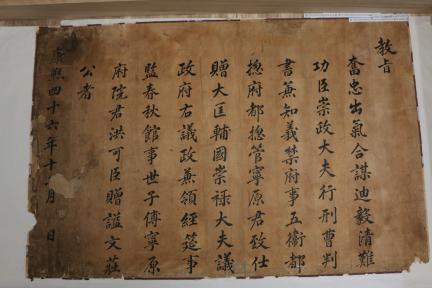 教旨
奮忠出氣合謀迪毅清難
功臣崇政大夫行刑曹判
書兼知義禁府事五衛都
摠府都摠管寧原君致仕
贈大匡輔國崇祿大夫議
政府右議政兼領經筵事
監春秋館事世子傅寧原
府院君洪可臣贈諡文莊
公者
康熙四十六年十一月 日